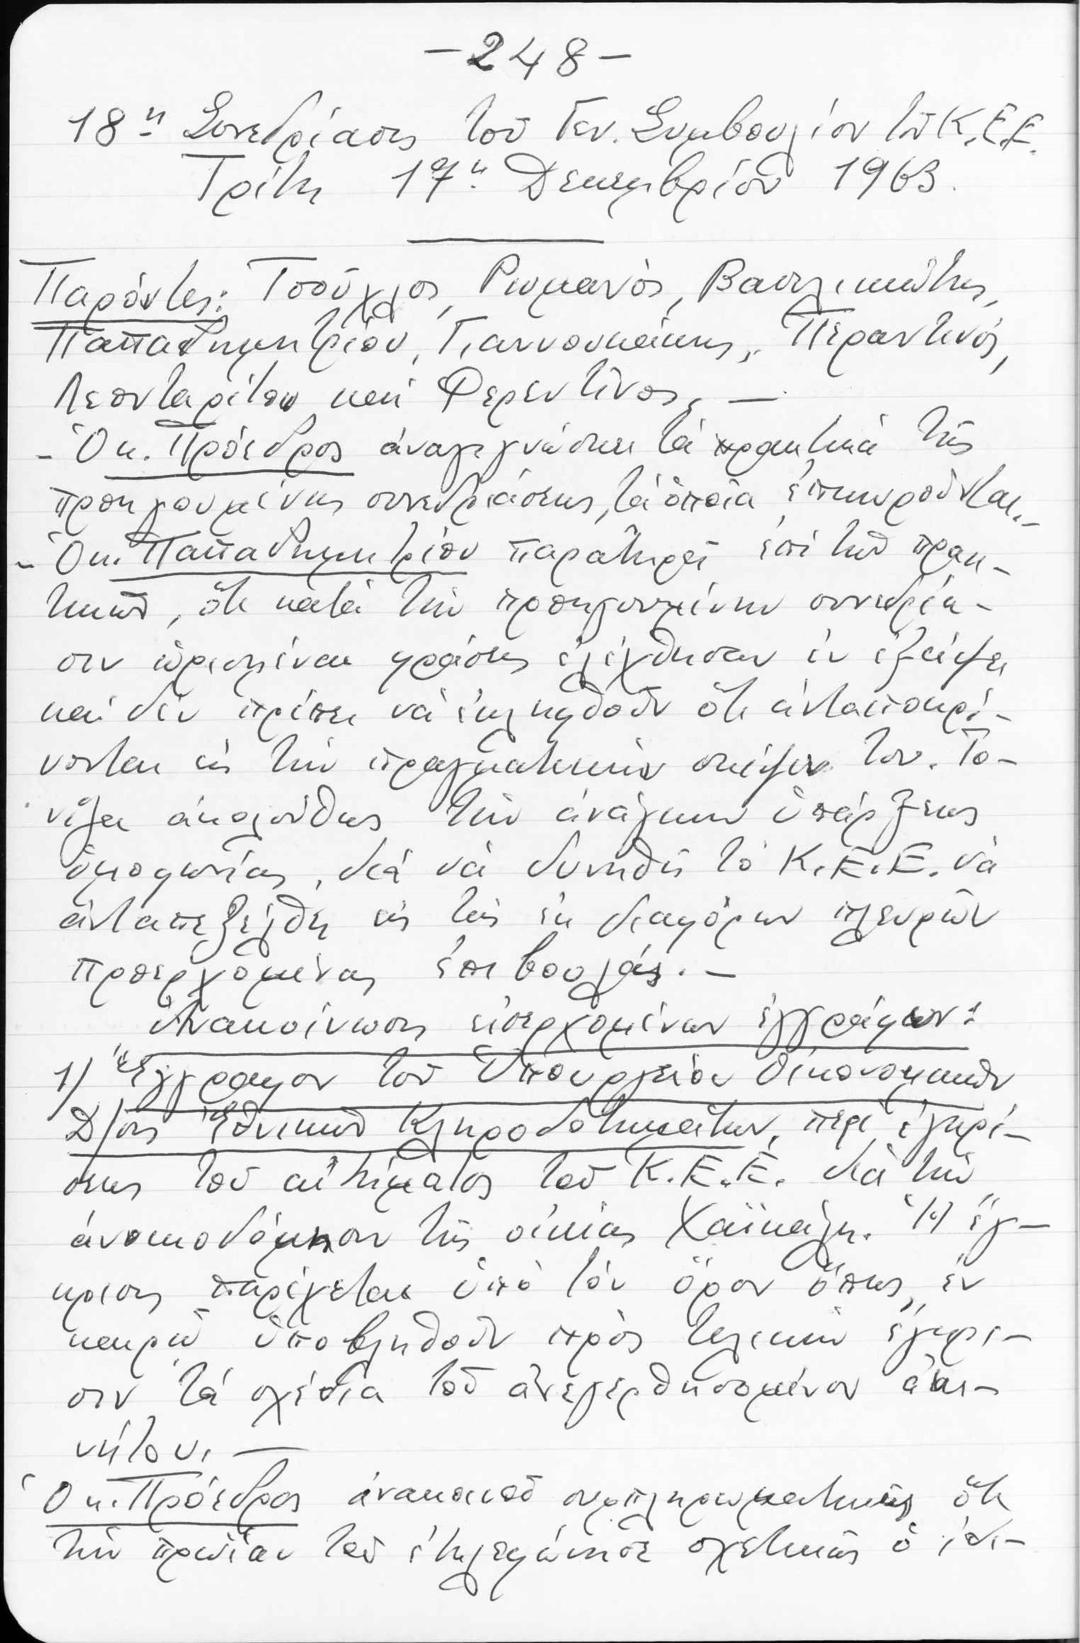 -248-
18η Συνεδρίασις τοῦ Γεν. Συμβουλίου τοῦ Κ.Ε.Ε.
Τρίτη 17η Δεκεμβρίου 1963.
Παρόντες: Τσοῦχλος, Ρωμανός, Βασιλικιώτης,
Παπαδημητρίου, Γιαννουκάκης, Περαντινός,
Λεονταρίτου καί Φερεντῖνος. —
- Ὁ κ. Πρόεδρος ἀναγιγνώσκει τά πρακτικά τῆς
προηγουμένης συνεδριάσεως, τά ὁποῖα ἐπικυροῦνται.-
- Ὁ κ. Παπαδημητρίου παρατηρεῖ ἐπί τῶν πρακ-
τικῶν, ὅτι κατά τήν προηγουμένην συνεδρία-
σιν ὡρισμέναι φράσεις ἐλέχθησαν ἐν ἐξάψει
καί δέν πρέπει νά ἐκληφθοῦν ὅτι ἀνταποκρί-
νονται εἰς τήν πραγματικήν σκέψιν του. Το-
νίζει ἀκολούθως τήν ἀνάγκην ὑπάρξεως
ὁμοφωνίας, διά νά δυνηθῆ τό Κ.Ε.Ε. νά
ἀνταπεξέλθη εἰς τάς ἐκ διαφόρων πλευρῶν
προερχομένας ἐπιβουλάς. —
Ἀνακοίνωσις εἰσερχομένων ἐγγράφων:
1) Ἔγγραφον τοῦ Ὑπουργείου Οἰκονομικῶν
Δ/σις Ἐθνικῶν Κληροδοτημάτων, περί ἐγκρί-
σεως τοῦ αἰτήματος τοῦ Κ.Ε.Ε. διά τήν
ἀνοικοδόμησιν τῆς οἰκίας Χαϊκάλη. Ἡ ἔγ-
κρισις παρέχεται ὑπό τόν ὅρον ὅπως, ἐν
καιρῶ ὑποβληθοῦν πρός τελικήν ἔγκρι-
σιν τά σχέδια τοῦ ἀνεγερθησομένου ἀκι-
νήτου. —
Ὁ κ. Πρόεδρος ἀνακοινοῖ συμπληρωματικῶς ὅτι
τήν πρωΐαν τοῦ ἐτηλεφώνησε σχετικῶς ὁ ἰδι-